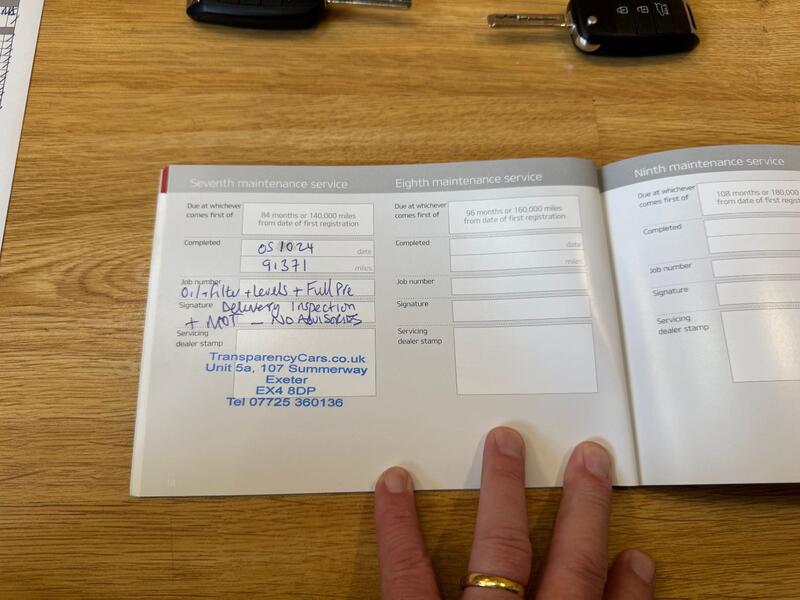 Seventh maintenance service
Due at whichever comes first of
84 months or 140,000 miles
from date of first registration
Completed
05 10 24
date
91371
miles
Job number
Oil + Filter + Levels + Full Pre
Signature
Delivery Inspection
+ MOT – NO ADVISORIES
Servicing
dealer stamp
TransparencyCars.co.uk
Unit 5a, 107 Summerway
Exeter
EX4 8DP
Tel 07725 360136
Eighth maintenance service
Due at whichever
comes first of
96 months or 160,000 miles
from date of first registration
Completed
date
miles
Job number
Signature
Servicing
dealer stamp
Ninth maintenance service
Due at whichever
comes first of
108 months or 180,000
from date of first regist
Completed
Job number
Signature
Servicing
dealer stamp